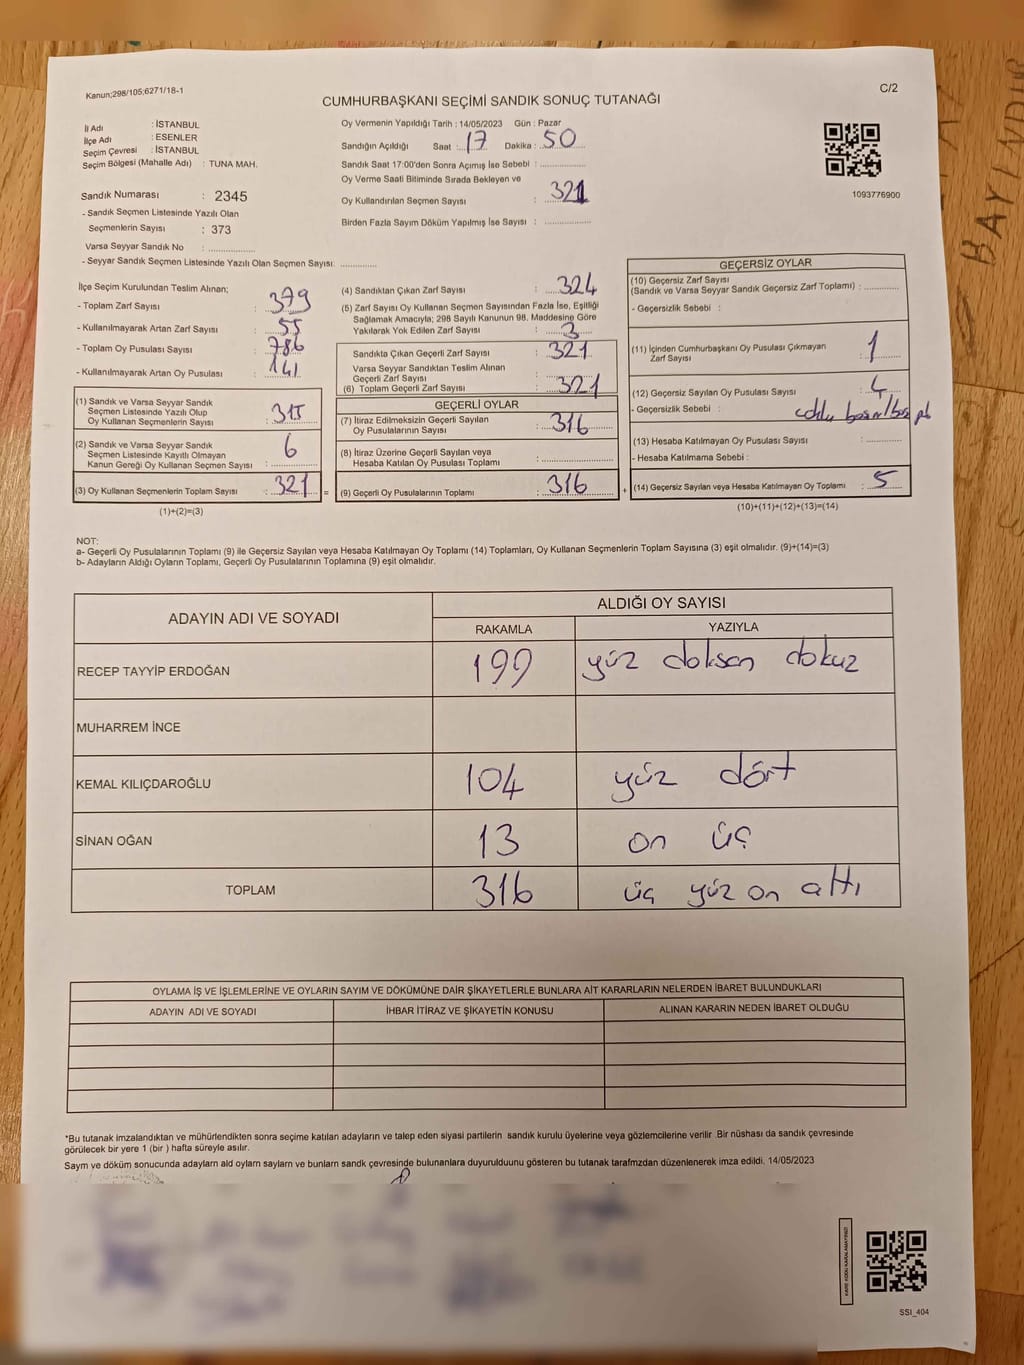 Kanun;298/105;6271/18-1
C/2
CUMHURBAŞKANI SEÇİMİ SANDIK SONUÇ TUTANAĞI
İl Adı : İSTANBUL
İlçe Adı : ESENLER
Seçim Çevresi : İSTANBUL
Seçim Bölgesi (Mahalle Adı) : TUNA MAH.
Sandık Numarası : 2345
- Sandık Seçmen Listesinde Yazılı Olan
Seçmenlerin Sayısı : 373
Varsa Seyyar Sandık No :
- Seyyar Sandık Seçmen Listesinde Yazılı Olan Seçmen Sayısı:
Oy Vermenin Yapıldığı Tarih : 14/05/2023 Gün : Pazar
Sandığın Açıldığı Saat : 17 Dakika : 50
Sandık Saat 17:00'den Sonra Açımış İse Sebebi :
Oy Verme Saati Bitiminde Sırada Bekleyen ve
Oy Kullandırılan Seçmen Sayısı : 321
Birden Fazla Sayım Döküm Yapılmış İse Sayısı :
1093776900
BAYINDIR
İlçe Seçim Kurulundan Teslim Alınan;
- Toplam Zarf Sayısı : 379
- Kullanılmayarak Artan Zarf Sayısı : 55
- Toplam Oy Pusulası Sayısı : 786
- Kullanılmayarak Artan Oy Pusulası : 141
(1) Sandık ve Varsa Seyyar Sandık
Seçmen Listesinde Yazılı Olup
Oy Kullanan Seçmenlerin Sayısı : 315
(2) Sandık ve Varsa Seyyar Sandık
Seçmen Listesinde Kayıtlı Olmayan
Kanun Gereği Oy Kullanan Seçmen Sayısı : 6
(3) Oy Kullanan Seçmenlerin Toplam Sayısı : 321 =
(1)+(2)=(3)
(4) Sandıktan Çıkan Zarf Sayısı : 324
(5) Zarf Sayısı Oy Kullanan Seçmen Sayısından Fazla İse, Eşitliği
Sağlamak Amacıyla; 298 Sayılı Kanunun 98. Maddesine Göre
Yakılarak Yok Edilen Zarf Sayısı : 3
Sandıkta Çıkan Geçerli Zarf Sayısı : 321
Varsa Seyyar Sandıktan Teslim Alınan
Geçerli Zarf Sayısı :
(6) Toplam Geçerli Zarf Sayısı : 321
GEÇERLİ OYLAR
(7) İtiraz Edilmeksizin Geçerli Sayılan
Oy Pusulalarının Sayısı : 316
(8) İtiraz Üzerine Geçerli Sayılan veya
Hesaba Katılan Oy Pusulası Toplamı :
(9) Geçerli Oy Pusulalarının Toplamı : 316 +
GEÇERSİZ OYLAR
(10) Geçersiz Zarf Sayısı
(Sandık ve Varsa Seyyar Sandık Geçersiz Zarf Toplamı) :
- Geçersizlik Sebebi :
(11) İçinden Cumhurbaşkanı Oy Pusulası Çıkmayan
Zarf Sayısı : 1
(12) Geçersiz Sayılan Oy Pusulası Sayısı : 4
- Geçersizlik Sebebi :
(13) Hesaba Katılmayan Oy Pusulası Sayısı :
- Hesaba Katılmama Sebebi :
(14) Geçersiz Sayılan veya Hesaba Katılmayan Oy Toplamı : 5
(10)+(11)+(12)+(13)=(14)
NOT:
a- Geçerli Oy Pusulalarının Toplamı (9) ile Geçersiz Sayılan veya Hesaba Katılmayan Oy Toplamı (14) Toplamları, Oy Kullanan Seçmenlerin Toplam Sayısına (3) eşit olmalıdır. (9)+(14)=(3)
b- Adayların Aldığı Oyların Toplamı, Geçerli Oy Pusulalarının Toplamına (9) eşit olmalıdır.
ADAYIN ADI VE SOYADI
ALDIĞI OY SAYISI
RAKAMLA YAZIYLA
RECEP TAYYİP ERDOĞAN 199 yüz doksan dokuz
MUHARREM İNCE
KEMAL KILIÇDAROĞLU 104 yüz dört
SİNAN OĞAN 13 on üç
TOPLAM 316 üç yüz on altı
OYLAMA İŞ VE İŞLEMLERİNE VE OYLARIN SAYIM VE DÖKÜMÜNE DAİR ŞİKAYETLERLE BUNLARA AİT KARARLARIN NELERDEN İBARET BULUNDUKLARI
ADAYIN ADI VE SOYADI İHBAR İTİRAZ VE ŞİKAYETİN KONUSU ALINAN KARARIN NEDEN İBARET OLDUĞU
*Bu tutanak imzalandıktan ve mühürlendikten sonra seçime katılan adayların ve talep eden siyasi partilerin sandık kurulu üyelerine veya gözlemcilerine verilir .Bir nüshası da sandık çevresinde
görülecek bir yere 1 (bir ) hafta süreyle asılır.
Sayım ve döküm sonucunda adayların ald oyların sayları ve bunların sandk çevresinde bulunanlara duyurulduunu gösteren bu tutanak tarafmzdan düzenlenerek imza edildi. 14/05/2023
SSI_404